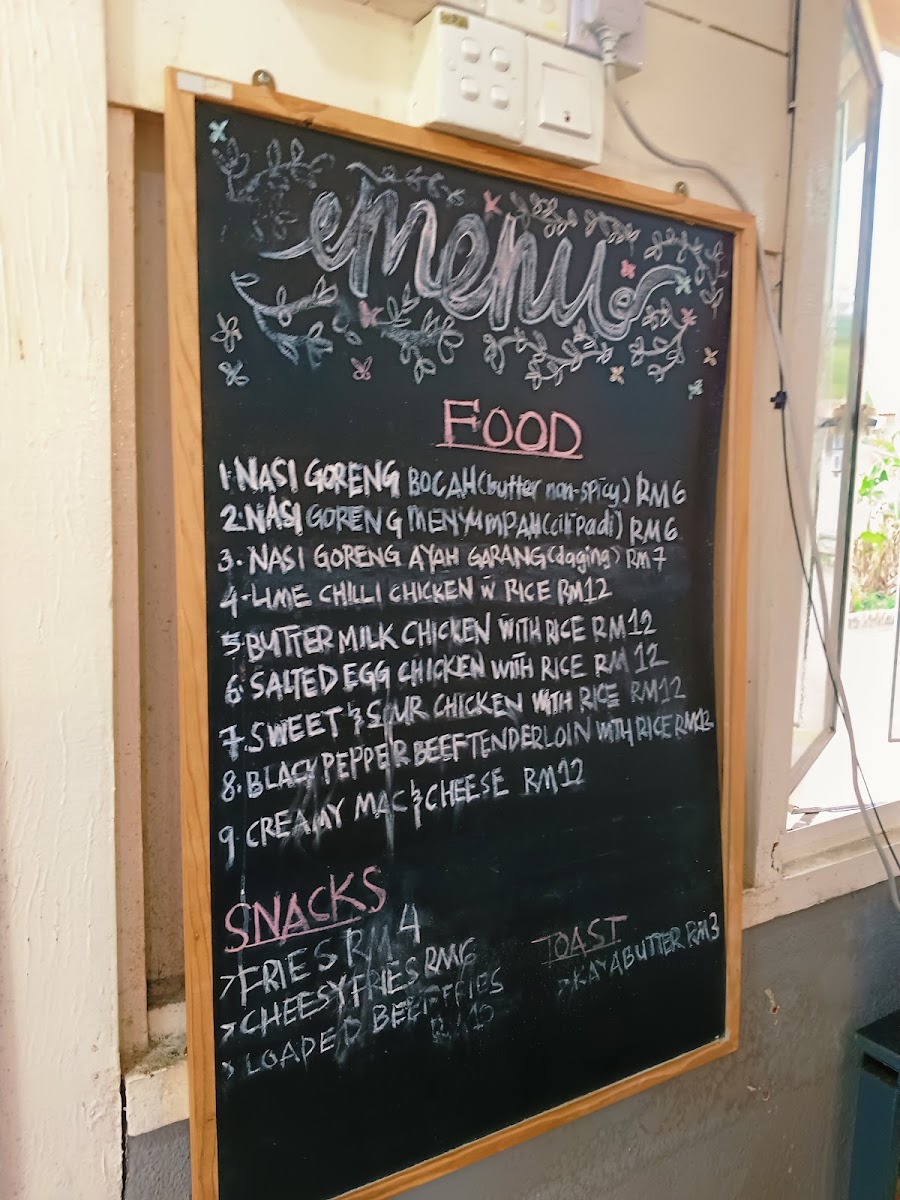 menu
FOOD
1 NASI GORENG BOCAH (butter non-spicy) RM 6
2. NASI GORENG MENYUMPAH (cili padi) RM 6
3. NASI GORENG AYAH GARANG (daging) RM 7
4. LIME CHILLI CHICKEN W RICE RM12
5. BUTTER MILK CHICKEN WITH RICE RM 12
6. SALTED EGG CHICKEN WITH RICE RM 12
7. SWEET & SOUR CHICKEN WITH RICE RM 12
8. BLACK PEPPER BEEF TENDERLOIN WITH RICE RM12
9. CREAMY MAC & CHEESE RM 12
SNACKS
> FRIES RM 4
> CHEESY FRIES RM6
> LOADED BEEF FRIES
RM 12
TOAST
> KAYA BUTTER RM 3